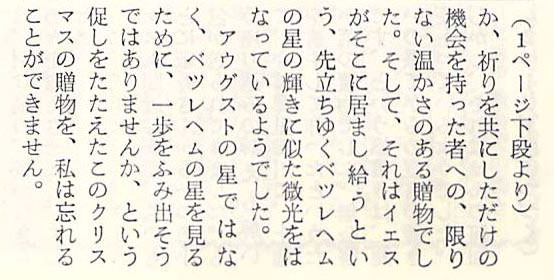 (1ページ下段より)
か、祈りを共にしただけの
機会を持った者への、限り
ない温かさのある贈物でし
た。そして、それはイエス
がそこに居まし給うとい
う、先立ちゆくベツレヘム
の星の輝きに似た微光をは
なっているようでした。
　アウグストの星ではな
く、ベツレヘムの星を見る
ために、一歩をふみ出そう
ではありませんか、という
促しをたたえたこのクリス
マスの贈物を、私は忘れる
ことができません。